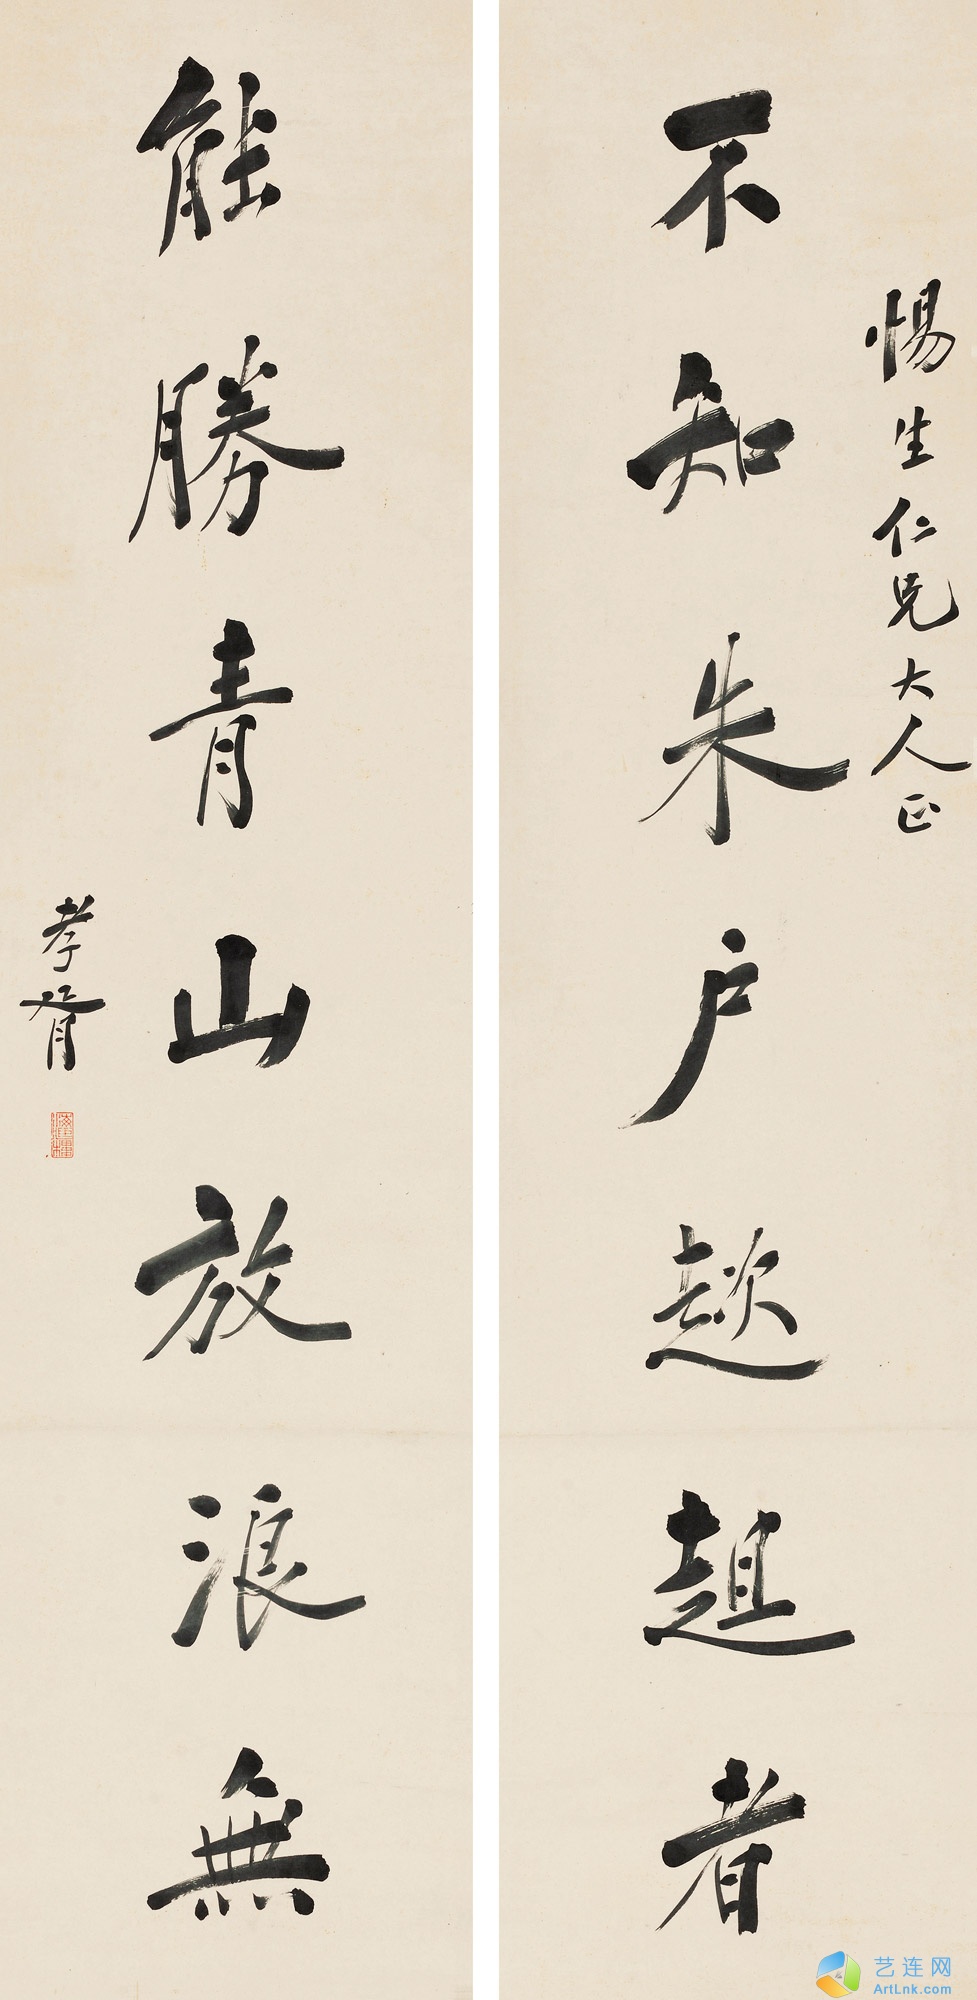 惕生仁兄大人正
不知朱户趑趄者
能勝青山放浪無
孝胥
艺连网
ArtLnk.com